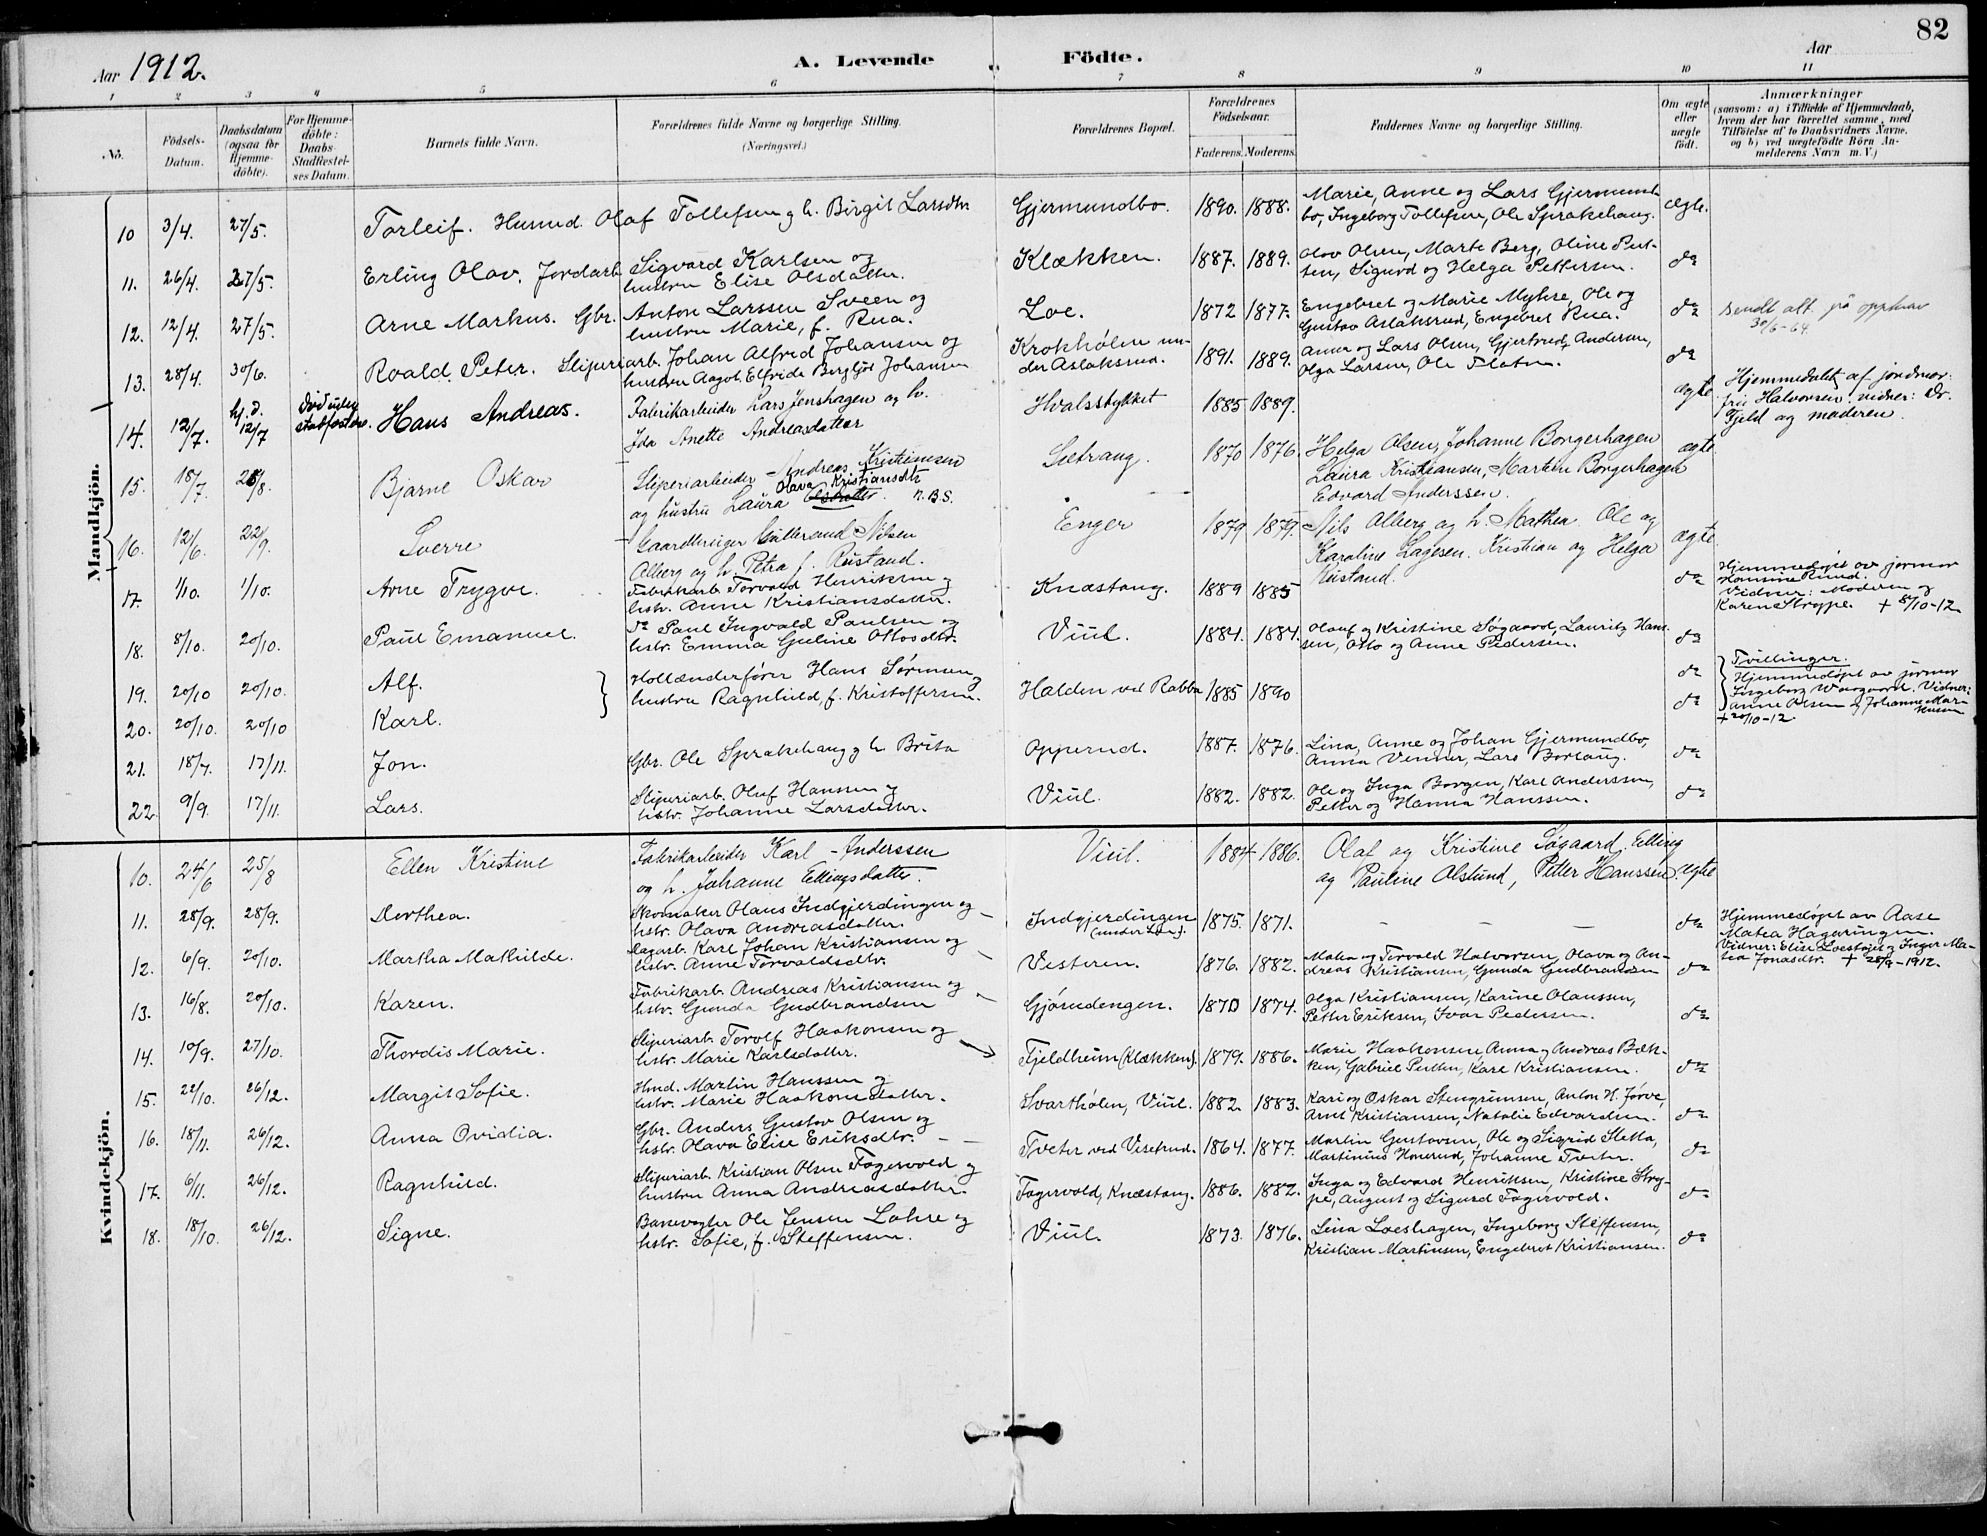 82
Aar 1912.
A. Levende Födte.
Aar
1 2 3 4 5 6 7 8 9 10 11
No.
Födsels-Datum.
Daabsdatum (ogsaa for Hjemme-döbte).
For Hjemme-döbte: Daabs-Stadfæstel-ses Datum.
Barnets fulde Navn.
Forældrenes fulde Navne og borgerlige Stilling. (Næringsvei.)
Forældrenes Bopæl.
Forældrenes Födselsaar.
Faderens. Moderens.
Faddernes Navne og borgerlige Stilling.
Om ægte eller uægte födt.
Anmærkninger
(saasom: a) i Tilfælde af Hjemmedaab, hvem der har forrettet samme, med Tilföielse af to Daabsvidners Navne, og b) ved uægtefödte Börn An-melderens Navn m. V.)
Mandkjön.
10 3/4. 27/5. Torleif. Husmd. Olaf Tollefsen og h. Birgit Larsdtr. Gjermundbo. 1890. 1888. Marie, Anne og Lars Gjermund-
bo, Ingeborg Tollefsen, Ole Sprakehaug. ægte.
11. 26/4. 27/5. Erling Olav. Jordarb. Sigvard Karlsen og
hustru Elise Olsdatter. Klækken. 1887. 1889. Olov Olsen, Marte Berg, Oline Pet-
sen, Sigurd og Helga Pettersen. do
12. 12/4. 27/5. Arne Markus. Gbr. Anton Larssen Sveen og
hustru Marie, f. Rua. Loe. 1872 1877. Engebret og Marie Myhre, Ole og
Gustav Aslaksrud, Engebret Rua. do sendt att. på opphav
30/6-64
13. 28/4. 30/6. Roald Peter. Sliperiarb. Johan Alfred Johansen og
hustru Aagot Elfride Bergljot Johansen Krokhølen un-
der Aslaksrud. 1891. 1889. Anna og Lars Olsen, Gjertrud Andersen,
Olga Larsen, Ole Flaten. do
14. 12/7. hj.d. 12/7 Død uden stadfæstelse. Hans Andreas. Fabrikarbeider Lars Jenshagen og h.
Ida Anette Andreasdatter Hvalsstykket 1885 1889. ægte Hjemmedøbt af jordmor:
fru Halvorsen. vidner: Dr.
Fjeld og moderen.
15. 18/7. 25/8. Bjarne Oskar Sliperiarbeider Andreas Kristiansen
og hustru Laura Olava Kristiansdtr. n.B.S. Setrang. 1870 1876. Helga Olsen, Johanne Borgerhagen
Laura Kristiansen, Martin Borgerhagen
Edvard Anderssen. ægte
16. 12/6. 22/9. Sverre Gaardbruger Gulbrand Nilsen
Alberg og h. Petra f. Rustand. Enger 1879 1879. Nils Alberg og h. Mathea. Ole og
Karoline Lagesen. Kristian og Helga
Rustand. ægte
17. 1/10. 1/10. Arne Trygve. Fabrikarb. Torvald Henriksen og
hstr. Anne Kristiansdatter. Knæstang. 1889 1885 do Hjemmedøpt av jormor
Hamine Rund.
Vidner: Moderen og
Karen Stroppe. + 8/10-12
18. 8/10. 20/10. Paul Emanuel. do Paul Ingvald Paulsen og
hstr. Emma Guline Ottosdtr. Viul. 1884. 1884. Olauf og Kristine Søgaard, Lauritz Han-
sen, Otto og Anne Pedersen. do
19. 20/10 20/10. Alf. Hollænderfører Hans Sørensen og
hustru Ragnhild, f. Kristoffersen. Halden ved Rabba 1885 1890 do Tvillinger.
Hjemmedøpt av jormor
20. 20/10. 20/10 Karl. do Ingeborg Waagaard. Vidner:
Anne Olsen og Johanne Mar-
kusen
+ 20/10-12
21. 18/7. 17/11. Jon. Gbr. Ole Sprakehaug og h. Brita Opperud. 1887. 1876. Lina, Anne og Johan Gjermundbo,
Anna Venner, Lars Bortaug. do
22. 9/9. 17/11. Lars. Sliperiarb. Oluf Hanssen og
hstr. Johanne Larsdatter. Viul. 1882. 1882. Ole og Inga Borgen, Karl Anderssen,
Petter og Hanna Hanssen. do
Kvindekjön.
10. 24/6 25/8 Ellen Kristine Fabrikarbeider Karl Anderssen
og h. Johanne Ellingsdatter. Viul. 1884 1886. Olaf og Kristine Søgaard, Elling
og Pauline Alslund, Petter Hanssen. ægte
11. 28/9. 28/9. Dorthea. Skomaker Olaus Indgjerdingen og
hstr. Olava Andreasdatter. Indgjerdingen
(under Loe). 1875. 1871. — — do Hjemmedøpt av Aase
Matea Hagaringen.
Vidner: Elise Loestøjet og Inger Ma-
tea Jonasdtr. + 28/9-1912.
12. 6/9. 20/10. Martha Mathilde. Dagarb. Karl Johan Kristiansen og
hstr. Anne Torvaldsdtr. Vesteren. 1876. 1882. Matea og Torvald Halvorsen, Olava og An-
dreas Kristiansen, Gunda Gudbrandsen do
13. 16/8. 20/10. Karen. Fabrikarb. Andreas Kristiansen og
hstr. Gunda Gudbrandsen Gjørudengen. 1870 1874. Olga Kristiansen, Karine Olaussen,
Petter Eriksen, Ivar Pedersen. do
14. 10/9. 27/10. Thordis Marie. Sliperiarb. Torolf Haakonsen og
hstr. Marie Karlsdatter. Fjeldheim (Klækken). 1879. 1886. Marie Haakonsen, Anna og Andreas Bæk-
ken, Gabriel Petter, Karl Kristiansen. do
15. 22/10. 26/12. Margit Sofie. Hmd. Martin Hanssen og
hstr. Marie Haakonsdatter. Svarthølen, Viul. 1882. 1883. Kari og Oskar Stengrimsen, Anton H. Jørve,
Arnt Kristiansen, Natalie Edvardsen. do
16. 18/11. 26/12. Anna Ovidia. Gbr. Anders Gustav Olsen og
hstr. Olava Elise Eriksdtr. Tveter ved Viserud. 1864. 1877. Martin Gustavsen, Ole og Sigrid Sletta,
Martinius Honerud, Johanne Tveter. do
17. 6/11. 26/12. Ragnhild. Sliperiarb. Kristian Olsen Fagervold og
hustru Anna Andreasdatter. Fagervold, Knæstang. 1886. 1882. Inga og Edvard Henriksen, Kristine Strop-
pe, August og Sigurd Fagervold. do
18. 18/10. 26/12. Signe. Banevogter Ole Jensen Lohre og
hstr. Sofie, f. Steffensen. Viul. 1873. 1876. Lina Loeshagen, Ingeborg Steffensen,
Kristian Martinsen, Engebret Kristiansen. do